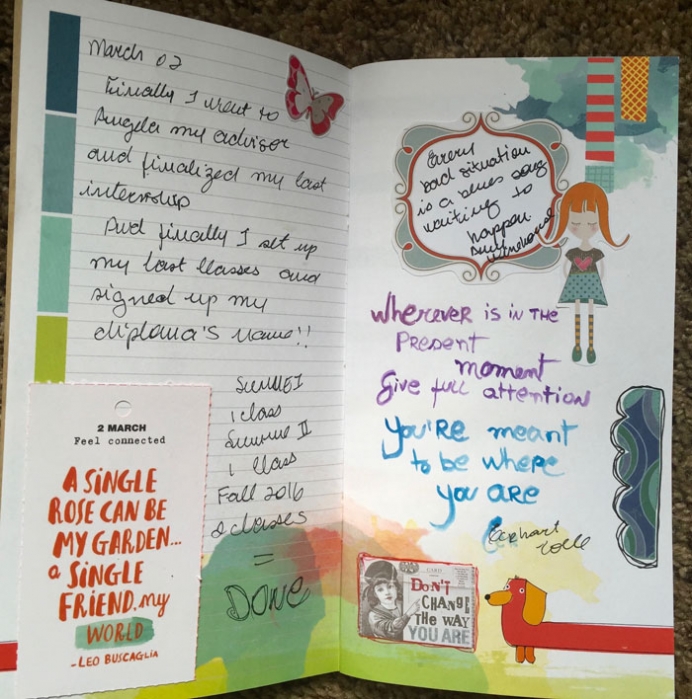 March 02
Finally I went to
Angela my advisor
and finalized my last
internship
And finally I set up
my last classes and
signed up my
diploma's name!!
Summer I
1 class
Summer II
1 class
Fall 2016
2 classes
=
DONE
2 MARCH
Feel connected
A SiNGLE
ROSE CAN BE
MY GARDEN...
a SiNGLE
FRiEND, my
WORLD
-LEO BUSCAGLiA
Every
bad situation
is a blues song
waiting to
happen.
Amy
Winehouse
Wherever is in THE
Present
moment
Give full attention
You're meant
to be where
you are
Eckhart
Tolle
DON'T
CHANGE
THE WAY
YOU ARE